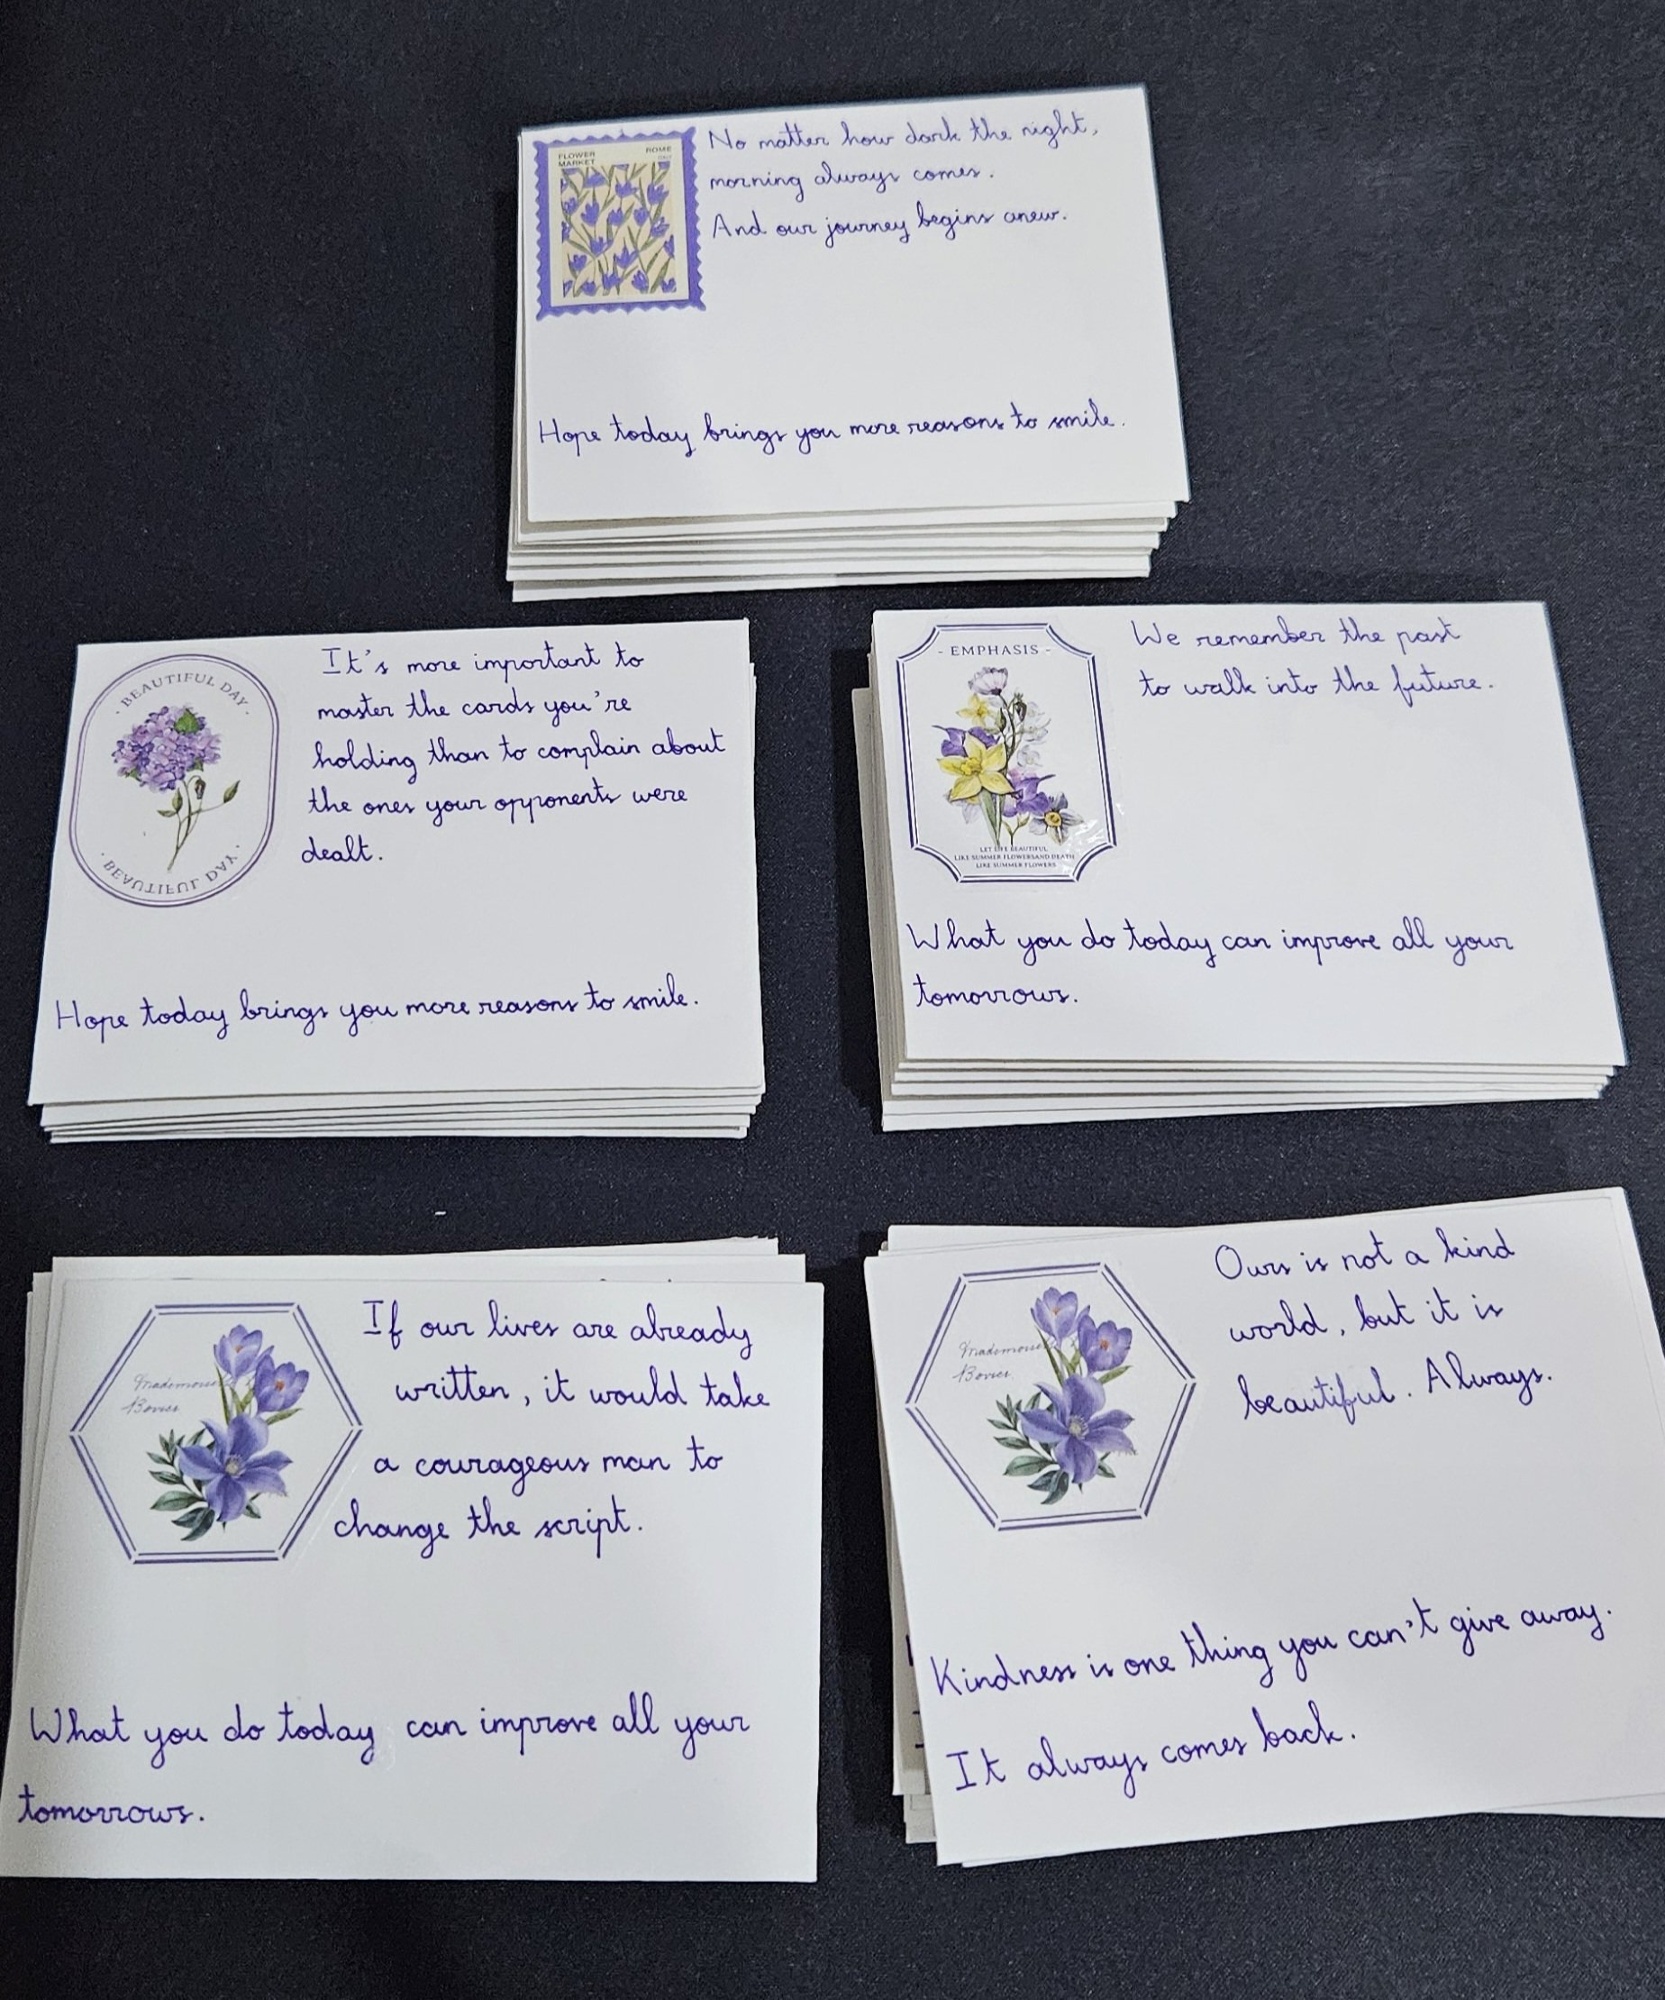 FLOWER
MARKET
ROME
No matter how dark the night,
morning always comes.
And our journey begins anew.
Hope today brings you more reasons to smile.
BEAUTIFUL DAY
BEAUTIFUL DAY
It's more important to
master the cards you're
holding than to complain about
the ones your opponents were
dealt.
Hope today brings you more reasons to smile.
- EMPHASIS -
LET LIFE BEAUTIFUL
LIKE SUMMER FLOWERSAND DEATH
LIKE SUMMER FLOWERS
We remember the past
to walk into the future.
What you do today can improve all your
tomorrows.
If our lives are already
written, it would take
a courageous man to
change the script.
What you do today can improve all your
tomorrows.
Ours is not a kind
world, but it is
beautiful. Always.
Kindness is one thing you can't give away.
It always comes back.